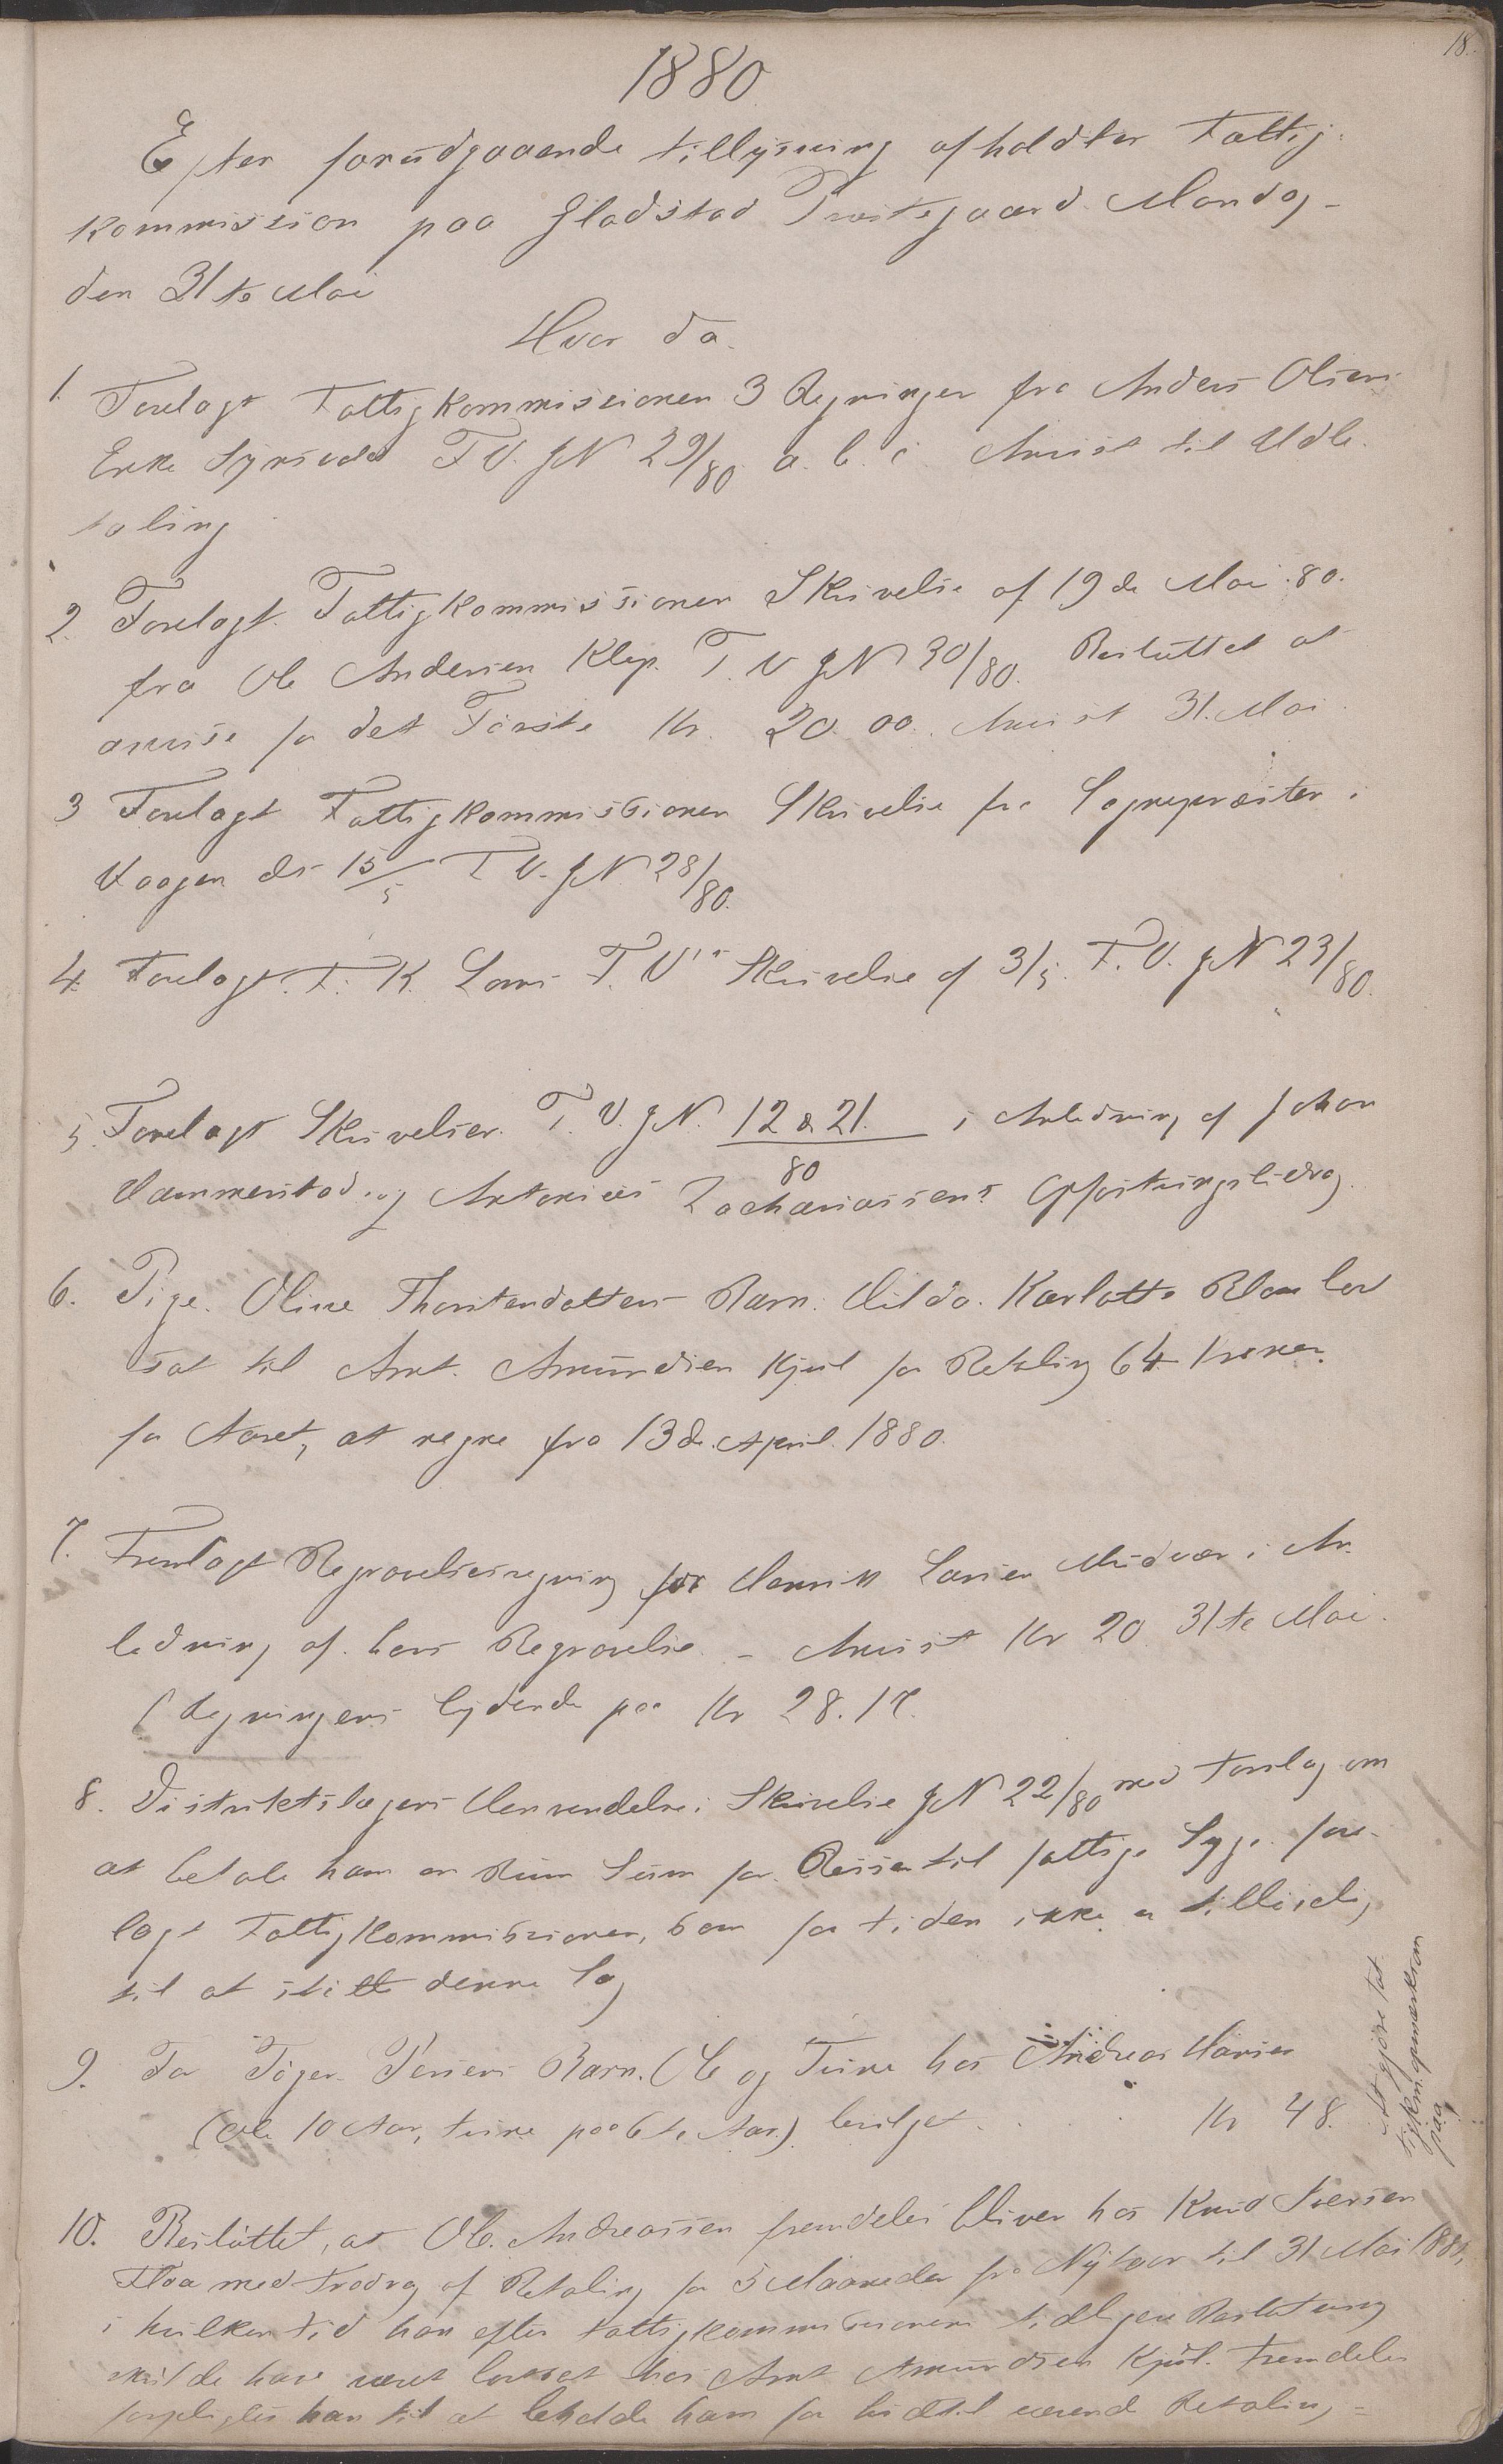 18.
1880
Efter forudgaaende tillysning afholdtes Fattig-
kommission paa Gladstad Prestegaard Mandag
den 31te Mai
Hvor da
1. Forelagt Fattigkommissionen 3 Regninger fra Anders Olsens
Enke T. V. J N 29/80 a. b. c Anvist til Udbe-
taling
2. Forelagt Fattigkommissionen Skrivelse af 19de Mai 80.
fra Ole Andersen Klep. T. V J N 30/80. Besluttet at
anvise for det Første Kr. 20.00. Anvist 31. Mai.
3 Forelagt Fattigkommissionen Skrivelse fra Sognepræsten i
Vaagan ds 15/5 T V. J N 28/80.
4. Forelagt F. K. T. V's Skrivelse af 3/5. T. V. J N 23/80.
5. Forelagt Skrivelser T. V. J N. 12 & 21./80 i Anledning af Johan
Hammerstad og Antonius Zachariassens Opfostringsbidrag.
6. Pige Oline Thorstendatters Barn Hilda Karlotta blev bort
sat til Arnt Amundsen Kjul for Betaling 64 kroner
for Aaret, at regne fra 13de April 1880.
7. Fremlagt Begravelsesregning for Henrik Larsen i An-
ledning af hans Begravelse. - Anvist Kr 20 31te Mai.
(Regningens lydende paa Kr 28.17.
8. Distriktslægens Henvendelse i Skrivelse J N 22/80 med Forslag om
at betale ham en Sum for Reiser til fattige Syge fore-
lagt Fattigkommissionen, som for tiden ikke er
til at denne Sag
9. For Barn Ole og Trine hos Andreas Hansen
(Ole 10 Aar, Trine paa 6te Aar) bevilget . . . Kr 48.
At gjøre
opmærksom
paa
10. Besluttet, at Ole Andreassen fremdeles bliver hos Knud Iversen
Floa med Fradrag af Betaling for 5 Maaneder fra Nytaar til 31 Mai 1880,
i hvilken tid han efter Fattigkommissionens tidligere Beslutning
skulde have været bortsat hos Arnt Amundsen Kjul. Fremdeles
forpligtes han til at beholde ham for hidtil værende Betaling =